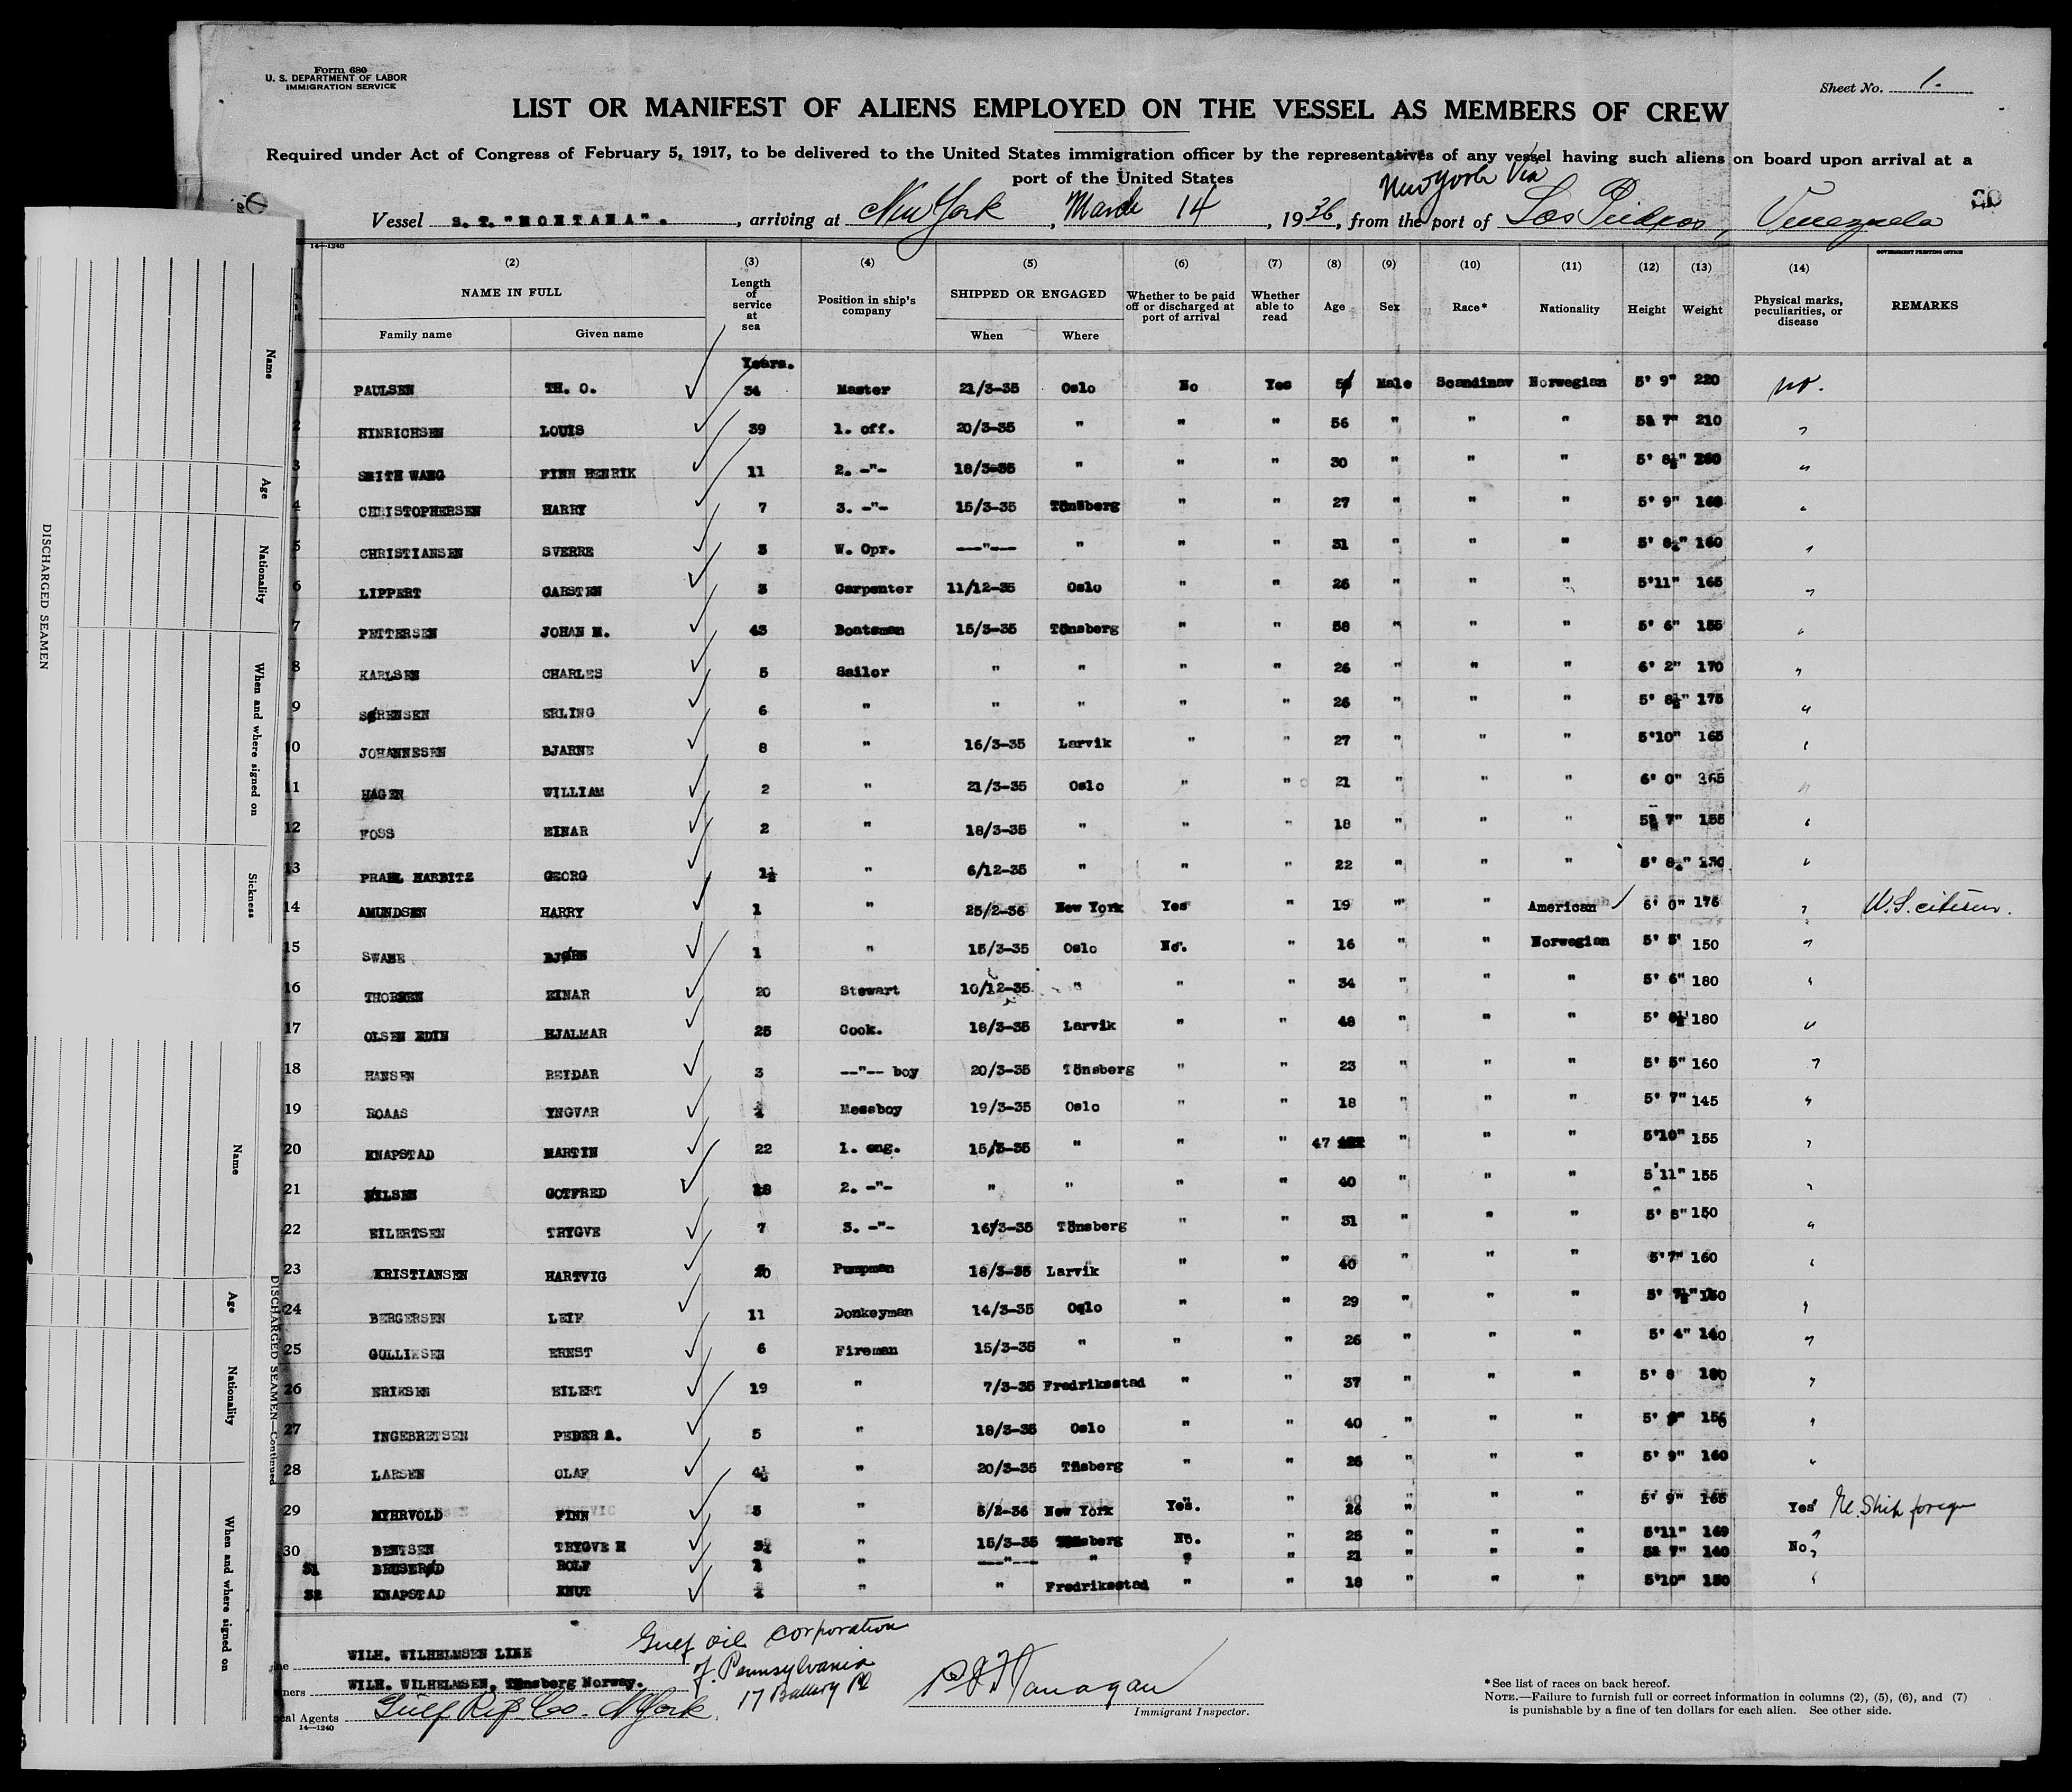 Form 680
U. S. DEPARTMENT OF LABOR
IMMIGRATION SERVICE
Sheet No. 1.
LIST OR MANIFEST OF ALIENS EMPLOYED ON THE VESSEL AS MEMBERS OF CREW
Required under Act of Congress of February 5, 1917, to be delivered to the United States immigration officer by the representatives of any vessel having such aliens on board upon arrival at a
port of the United States
New York Via
Vessel S. T. "MONTANA". , arriving at New York , March 14 , 1936, from the port of Las Piedras, Venezuela
14—1240
GOVERNMENT PRINTING OFFICE
(2) (3) (4) (5) (6) (7) (8) (9) (10) (11) (12) (13) (14)
NAME IN FULL Length of service at sea Position in ship's company SHIPPED OR ENGAGED Whether to be paid off or discharged at port of arrival Whether able to read Age Sex Race* Nationality Height Weight Physical marks, peculiarities, or disease REMARKS
Family name Given name When Where
Years.
1 PAULSEN TH. O. 34 Master 21/3-35 Oslo No Yes Male Scandinav Norwegian 5' 9" 220 no.
2 HINRICHSEN LOUIS 39 1. off. 20/3-35 " " " 56 " " " 7" 210 "
3 SMITH WANG FINN HENRIK 11 2. -"- 18/3-35 " " " 30 " " " 5' 8½" "
4 CHRISTOPHERSEN HARRY 7 3. -"- 15/3-35 Tönsberg " " 27 " " " 5' 9" 160 "
5 CHRISTIANSEN SVERRE 3 W. Opr. ---"--- " " " 31 " " " 5' 160 "
6 LIPPERT CARSTEN 3 Carpenter 11/12-35 Oslo " " 26 " " " 5'11" 165 "
7 PETTERSEN JOHAN M. 43 Boatsman 15/3-35 Tönsberg " " 58 " " " 5' 6" 155 "
8 KARLSEN CHARLES 5 Sailor " " " " 26 " " " 6' 2" 170 "
9 SØRENSEN ERLING 6 " " " " " 26 " " " 5' 8½" 175 "
10 JOHANNESEN BJARNE 8 " 16/3-35 Larvik " " 27 " " " 5'10" 165 "
11 HAGEN WILLIAM 2 " 21/3-35 Oslo " " 21 " " " 6' 0" "
12 FOSS EINAR 2 " 18/3-35 " " " 18 " " " 7" 155 "
13 PRAHL HARBITZ GEORG 1½ " 6/12-35 " " " 22 " " " 5' "
14 AMUNDSEN HARRY 1 " 25/2-36 New York Yes " 19 " " American 6' 0" 176 " U.S. citizen.
15 SWANE BJØRN 1 " 15/3-35 Oslo No. " 16 " " Norwegian 5' 5' 150 "
16 THORSEN EINAR 20 Stewart 10/12-35 " " " 34 " " " 5' 6" 180 "
17 OLSEN EDIN HJALMAR 25 Cook. 18/3-35 Larvik " " 48 " " " 5' 180 "
18 HANSEN REIDAR 3 --"-- boy 20/3-35 Tönsberg " " 23 " " " 5' 5" 160 "
19 ROAAS YNGVAR Messboy 19/3-35 Oslo " " 18 " " " 5' 7" 145 "
20 KNAPSTAD MARTIN 22 1. eng. 15/3-35 " " " 47 " " " 5'10" 155 "
21 NILSEN GOTFRED 2. -"- " " " " 40 " " " 5'11" 155 "
22 EILERTSEN TRYGVE 7 3. -"- 16/3-35 Tönsberg " " 31 " " " 5' 8" 150 "
23 KRISTIANSEN HARTVIG 20 Pumpman 18/3-35 Larvik " " 40 " " " 5'7" 160 "
24 BERGERSEN LEIF 11 Donkeyman 14/3-35 Oslo " " 29 " " " 5' 7½" "
25 GULLIKSEN ERNST 6 Fireman 15/3-35 " " " 26 " " " 5' 4" 140 "
26 ERIKSEN EILERT 19 " 7/3-35 Fredriksstad " " 37 " " " 5' 8 180 "
27 INGEBRETSEN PEDER A. 5 " 18/3-35 Oslo " " 40 " " " 5' 156 "
28 LARSEN OLAF 4½ " 20/3-35 Tnsberg " " 26 " " " 5' 9" 160 "
29 MYHRVOLD FINN 3 " 5/2-36 New York Yes. " 26 " " " 5' 9" 165 Yes Re. Ship foreign
30 BENTSEN TRYGVE H " 15/3-35 Tönsberg No. " 25 " " " 5'11" 169 "
31 BRUSERØD ROLF " ---"--- " " " 21 " " " 7" 140 No "
32 KNAPSTAD KNUT " " Fredriksstad " " 18 " " " 5'10" 150 "
WILH. WILHELMSEN LINE
Gulf Oil Corporation
of Pennsylvania
17 Battery Pl
ners WILH. WILHELMSEN, Tönsberg Norway.
cal Agents Gulf Ref. Co. N York.
14—1240
P J Flanagan
Immigrant Inspector.
*See list of races on back hereof.
NOTE.—Failure to furnish full or correct information in columns (2), (5), (6), and (7)
is punishable by a fine of ten dollars for each alien. See other side.
DISCHARGED SEAMEN
Name
Age
Nationality
When and where signed on
Sickness
DISCHARGED SEAMEN—Continued
Name
Age
Nationality
When and where signed on